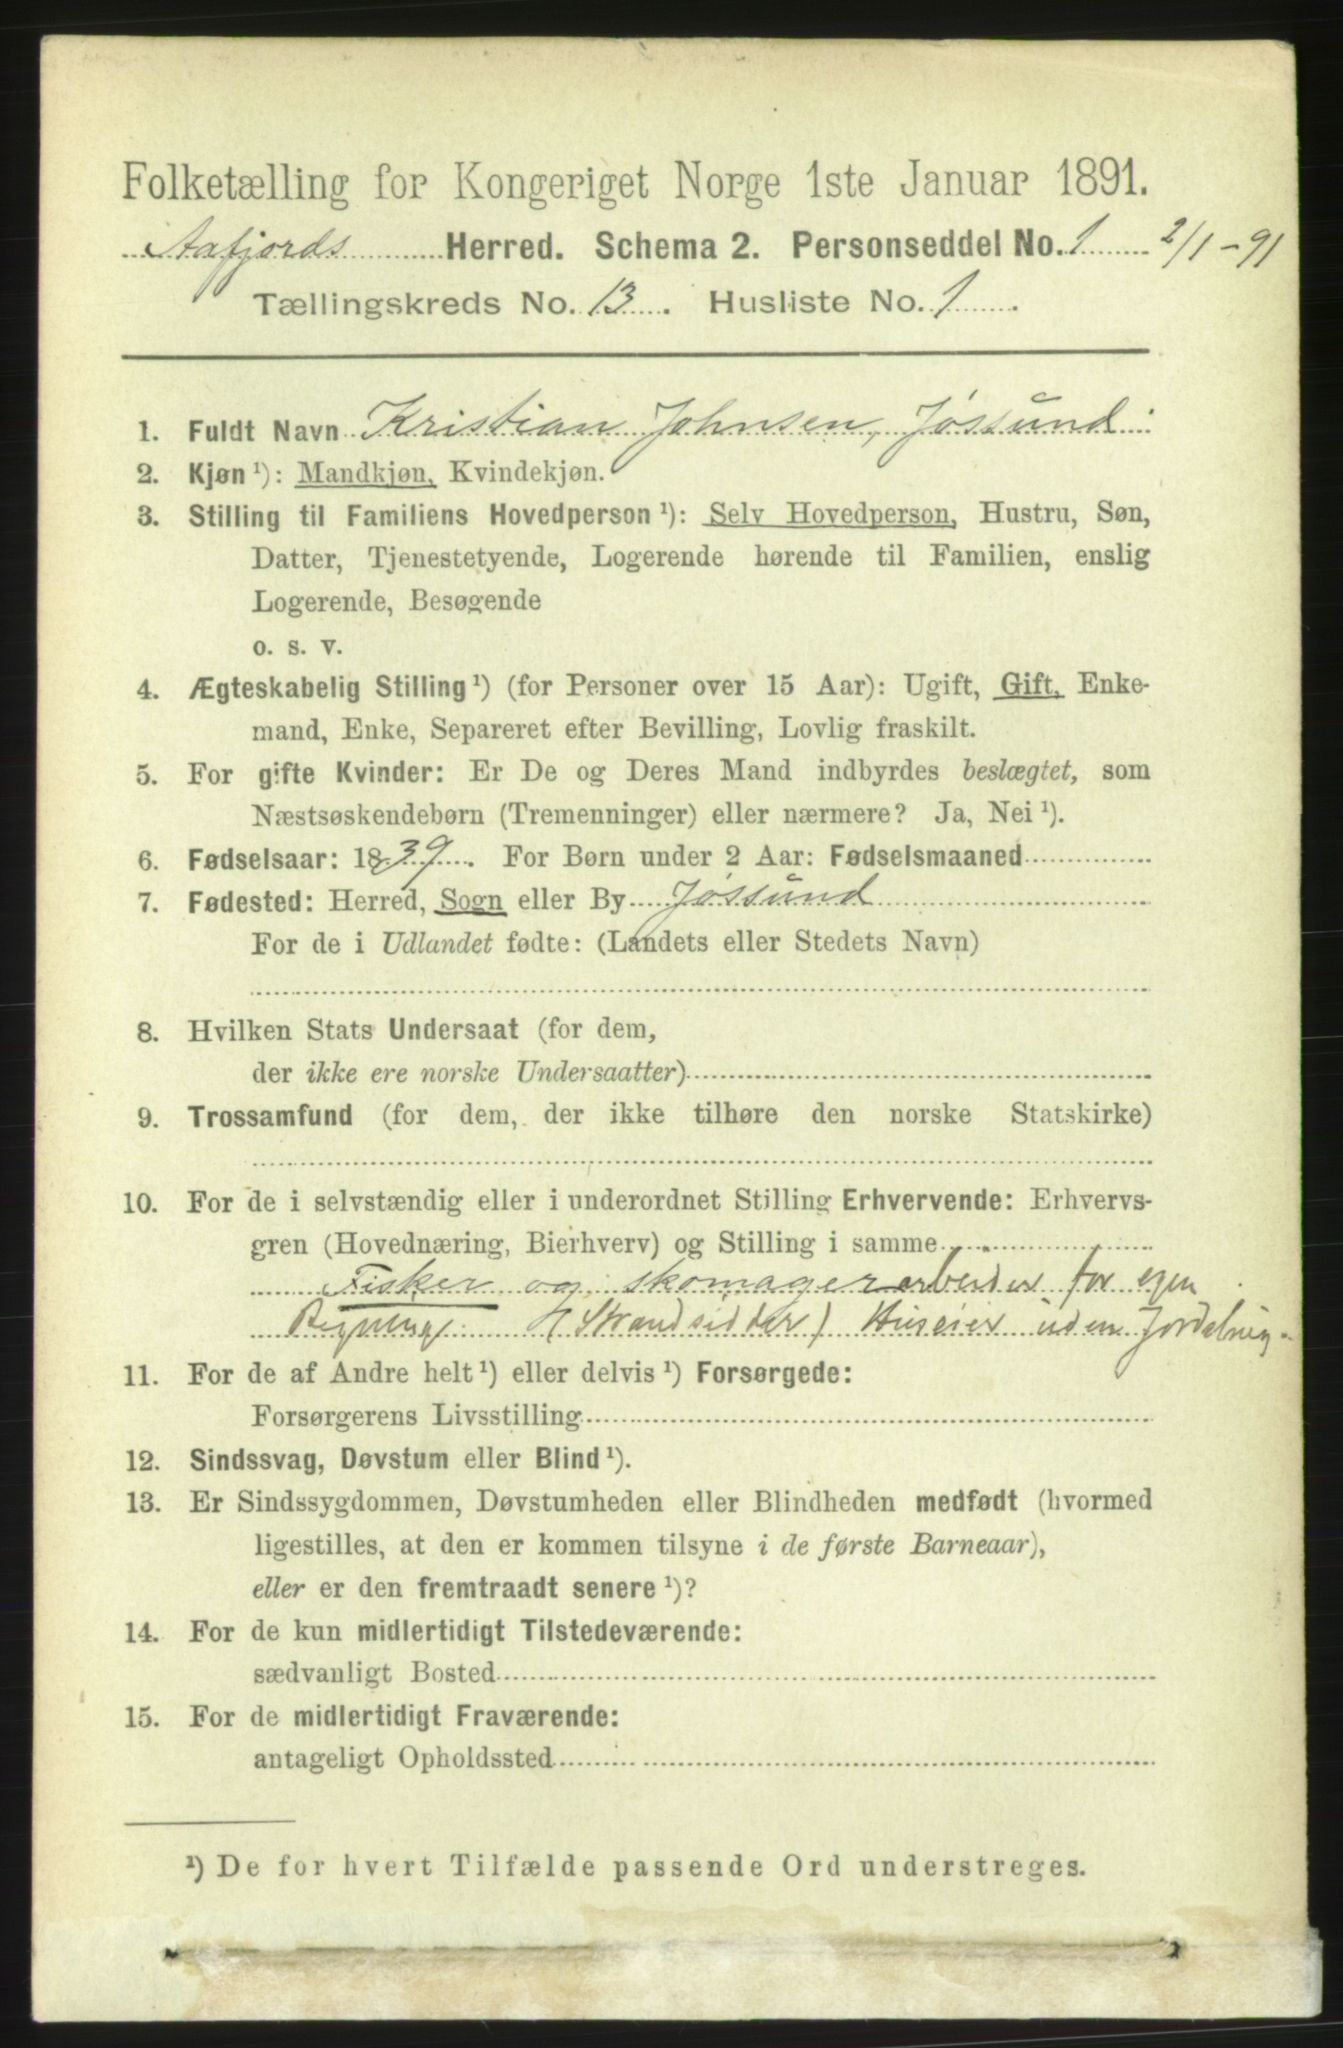 Folketælling for Kongeriget Norge 1ste Januar 1891.
Aafjords Herred. Schema 2. Personseddel No. 1 2/1-91
Tællingskreds No. 13. Husliste No. 1.
1. Fuldt Navn Kristian Johnsen, Jøssund
2. Kjøn ¹): Mandkjøn, Kvindekjøn.
3. Stilling til Familiens Hovedperson ¹): Selv Hovedperson, Hustru, Søn,
Datter, Tjenestetyende, Logerende hørende til Familien, enslig
Logerende, Besøgende
o. s. v.
4. Ægteskabelig Stilling ¹) (for Personer over 15 Aar): Ugift, Gift, Enke-
mand, Enke, Separeret efter Bevilling, Lovlig fraskilt.
5. For gifte Kvinder: Er De og Deres Mand indbyrdes beslægtet, som
Næstsøskendebørn (Tremenninger) eller nærmere? Ja, Nei ¹).
6. Fødselsaar: 1839. For Børn under 2 Aar: Fødselsmaaned
7. Fødested: Herred, Sogn eller By Jøssund
For de i Udlandet fødte: (Landets eller Stedets Navn)
8. Hvilken Stats Undersaat (for dem,
der ikke ere norske Undersaatter)
9. Trossamfund (for dem, der ikke tilhøre den norske Statskirke)
10. For de i selvstændig eller i underordnet Stilling Erhvervende: Erhvervs-
gren (Hovednæring, Bierhverv) og Stilling i samme
Fisker og skomagerarbeider for egen
Regning (Strandsidder) Huseier uden Jordbrug.
11. For de af Andre helt ¹) eller delvis ¹) Forsørgede:
Forsørgerens Livsstilling
12. Sindssvag, Døvstum eller Blind ¹).
13. Er Sindssygdommen, Døvstumheden eller Blindheden medfødt (hvormed
ligestilles, at den er kommen tilsyne i de første Barneaar),
eller er den fremtraadt senere ¹)?
14. For de kun midlertidigt Tilstedeværende:
sædvanligt Bosted
15. For de midlertidigt Fraværende:
antageligt Opholdssted
¹) De for hvert Tilfælde passende Ord understreges.